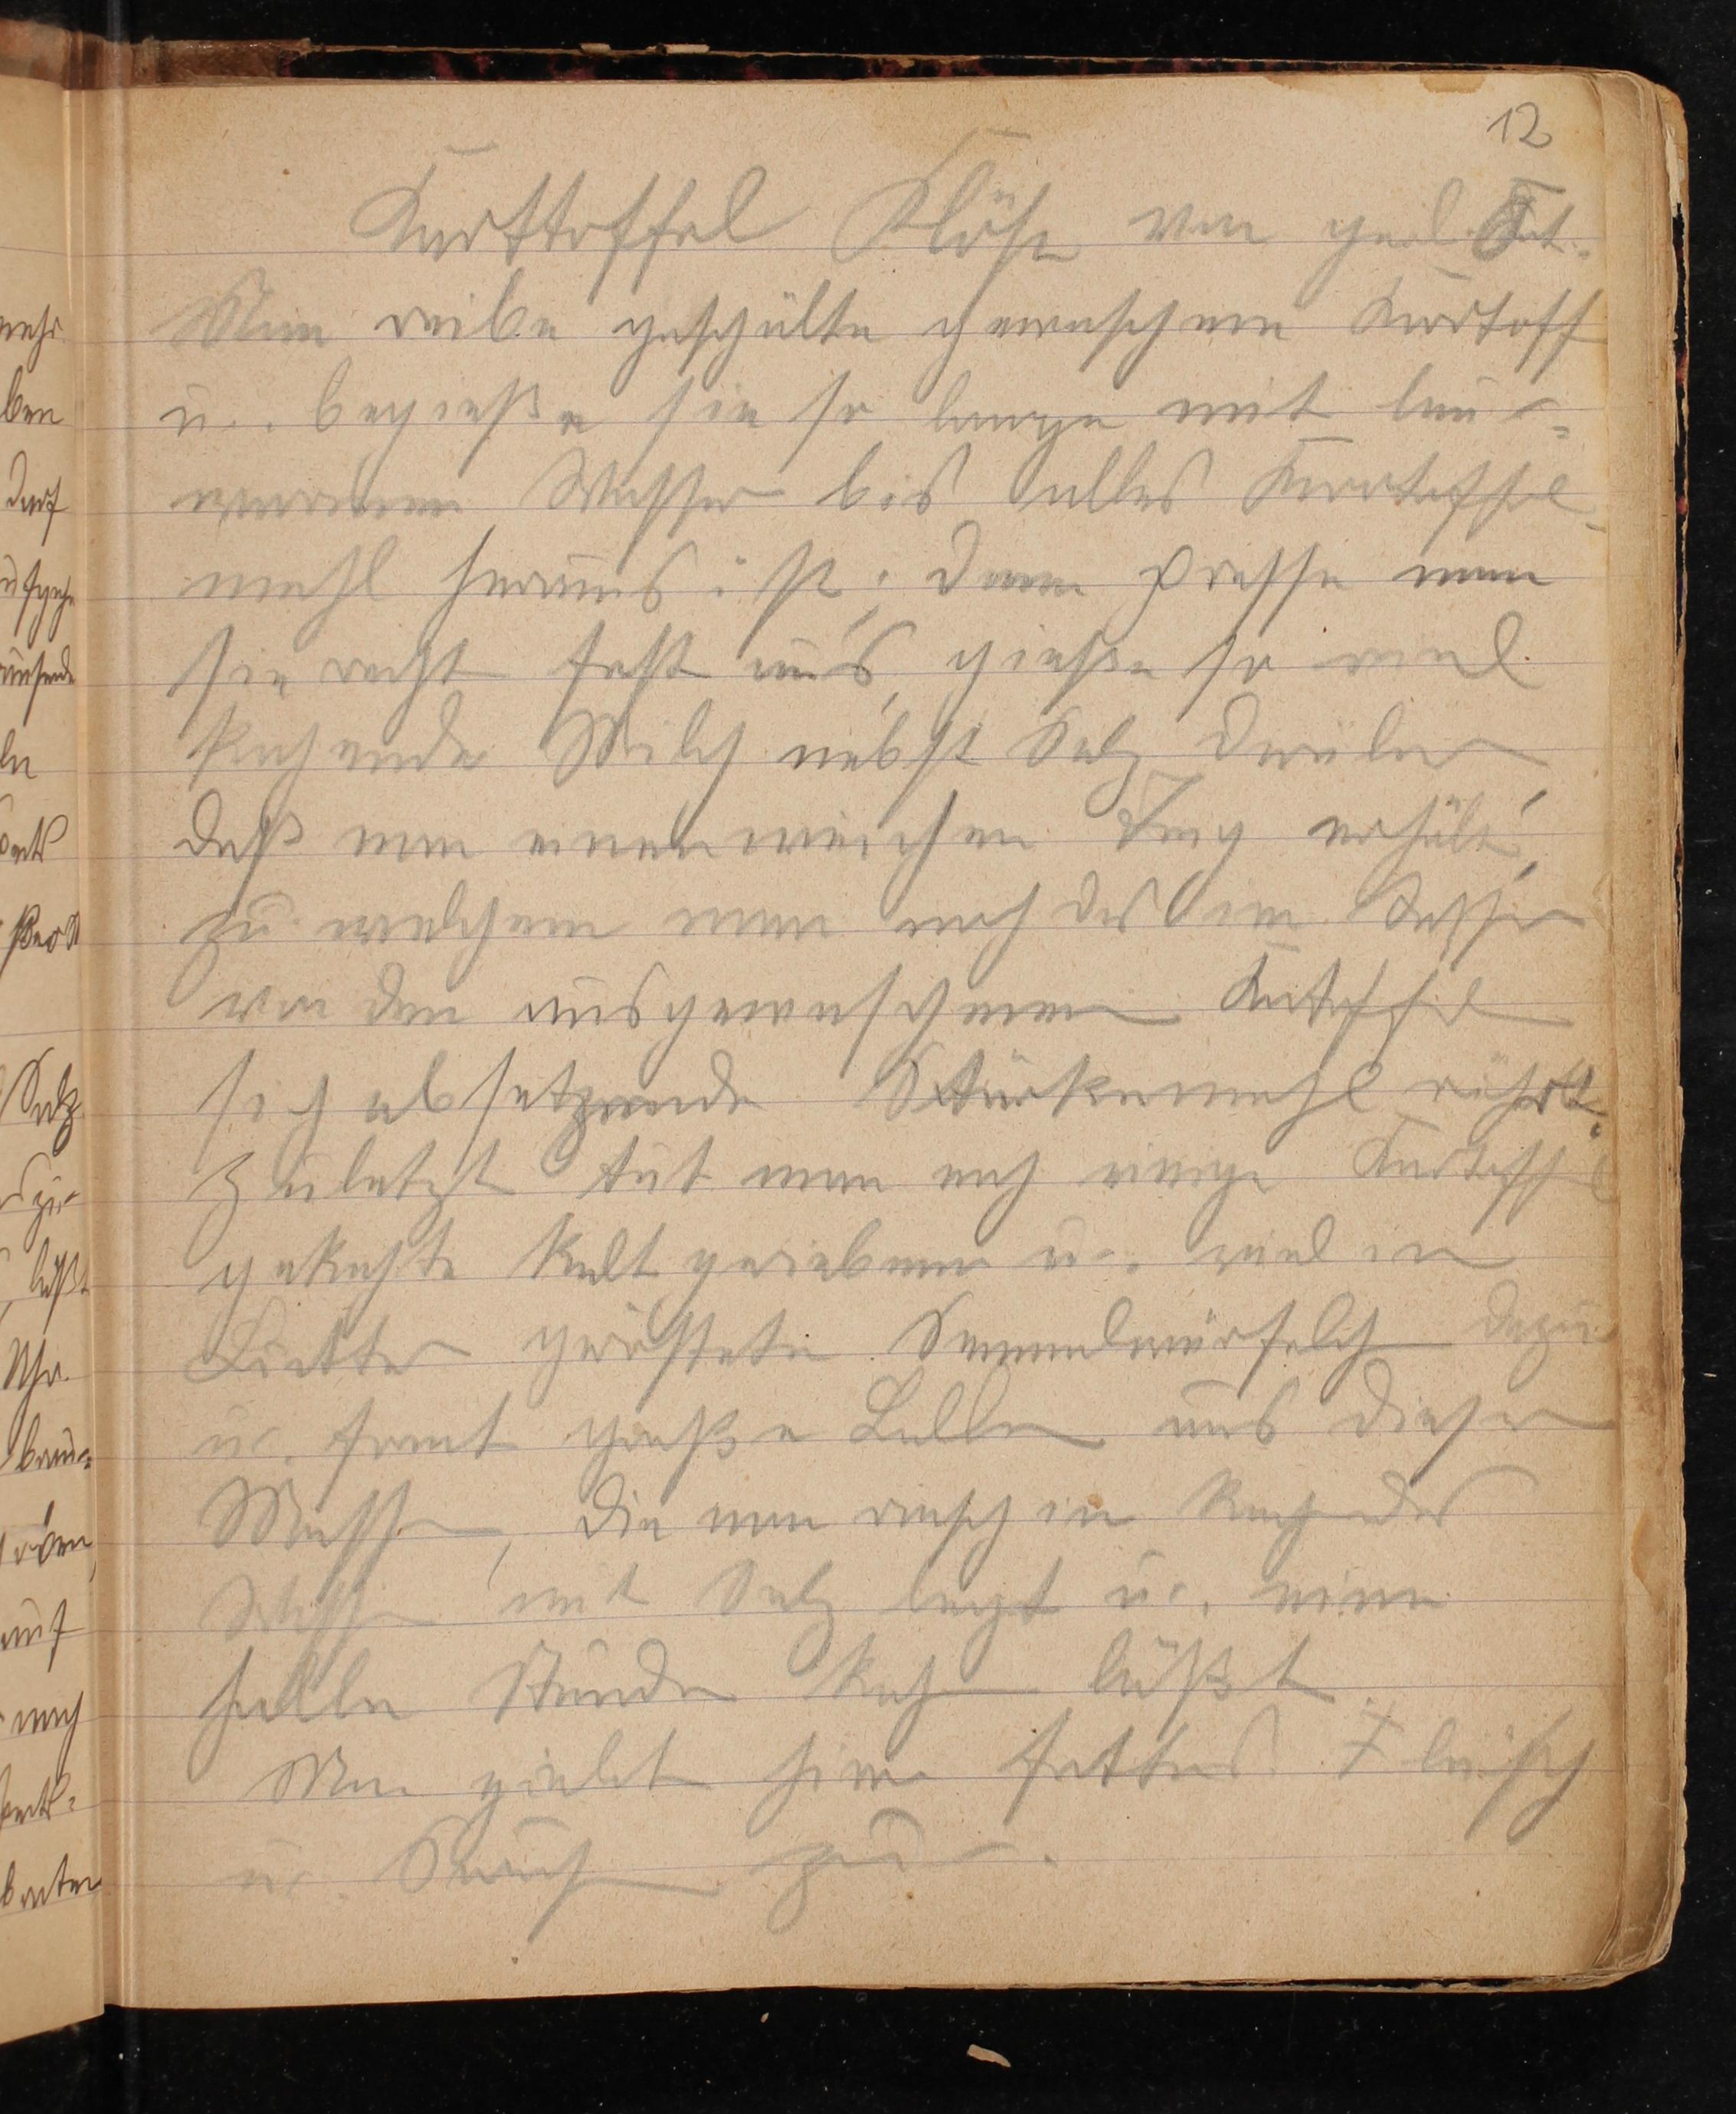 12
Karttoffel Klöße von
Man reibe geschälte gewaschene Kartoff
u. begieße sie so lange mit lau-
warmem Wasser bis alles Kartoffel
mehl heraus ist, dann presse man
sie recht fest aus, gieße so viel
kochende Milch nebst Salz darüber,
daß man einen weichen Teig erhält,
zu welchem man noch das im Wasser
von den ausgewaschenen Kartoffel
sich absetzende Stärkemehl rührt.
Zuletzt tut man noch einige Kartoffel
gekochte kalt geriebene u. viel in
Butter geröstete Semmelwürfelch dazu
u. formt große Ballen aus dieser
Masse, die man rasch in kochendes
Wasser mit Salz legt u. eine
halbe Stunde kochen läßt
Man giebt hirzu fettes Fleisch
u. zu.
mehr
ben
darf
ln
Salz
läßt
auf
noch
braten